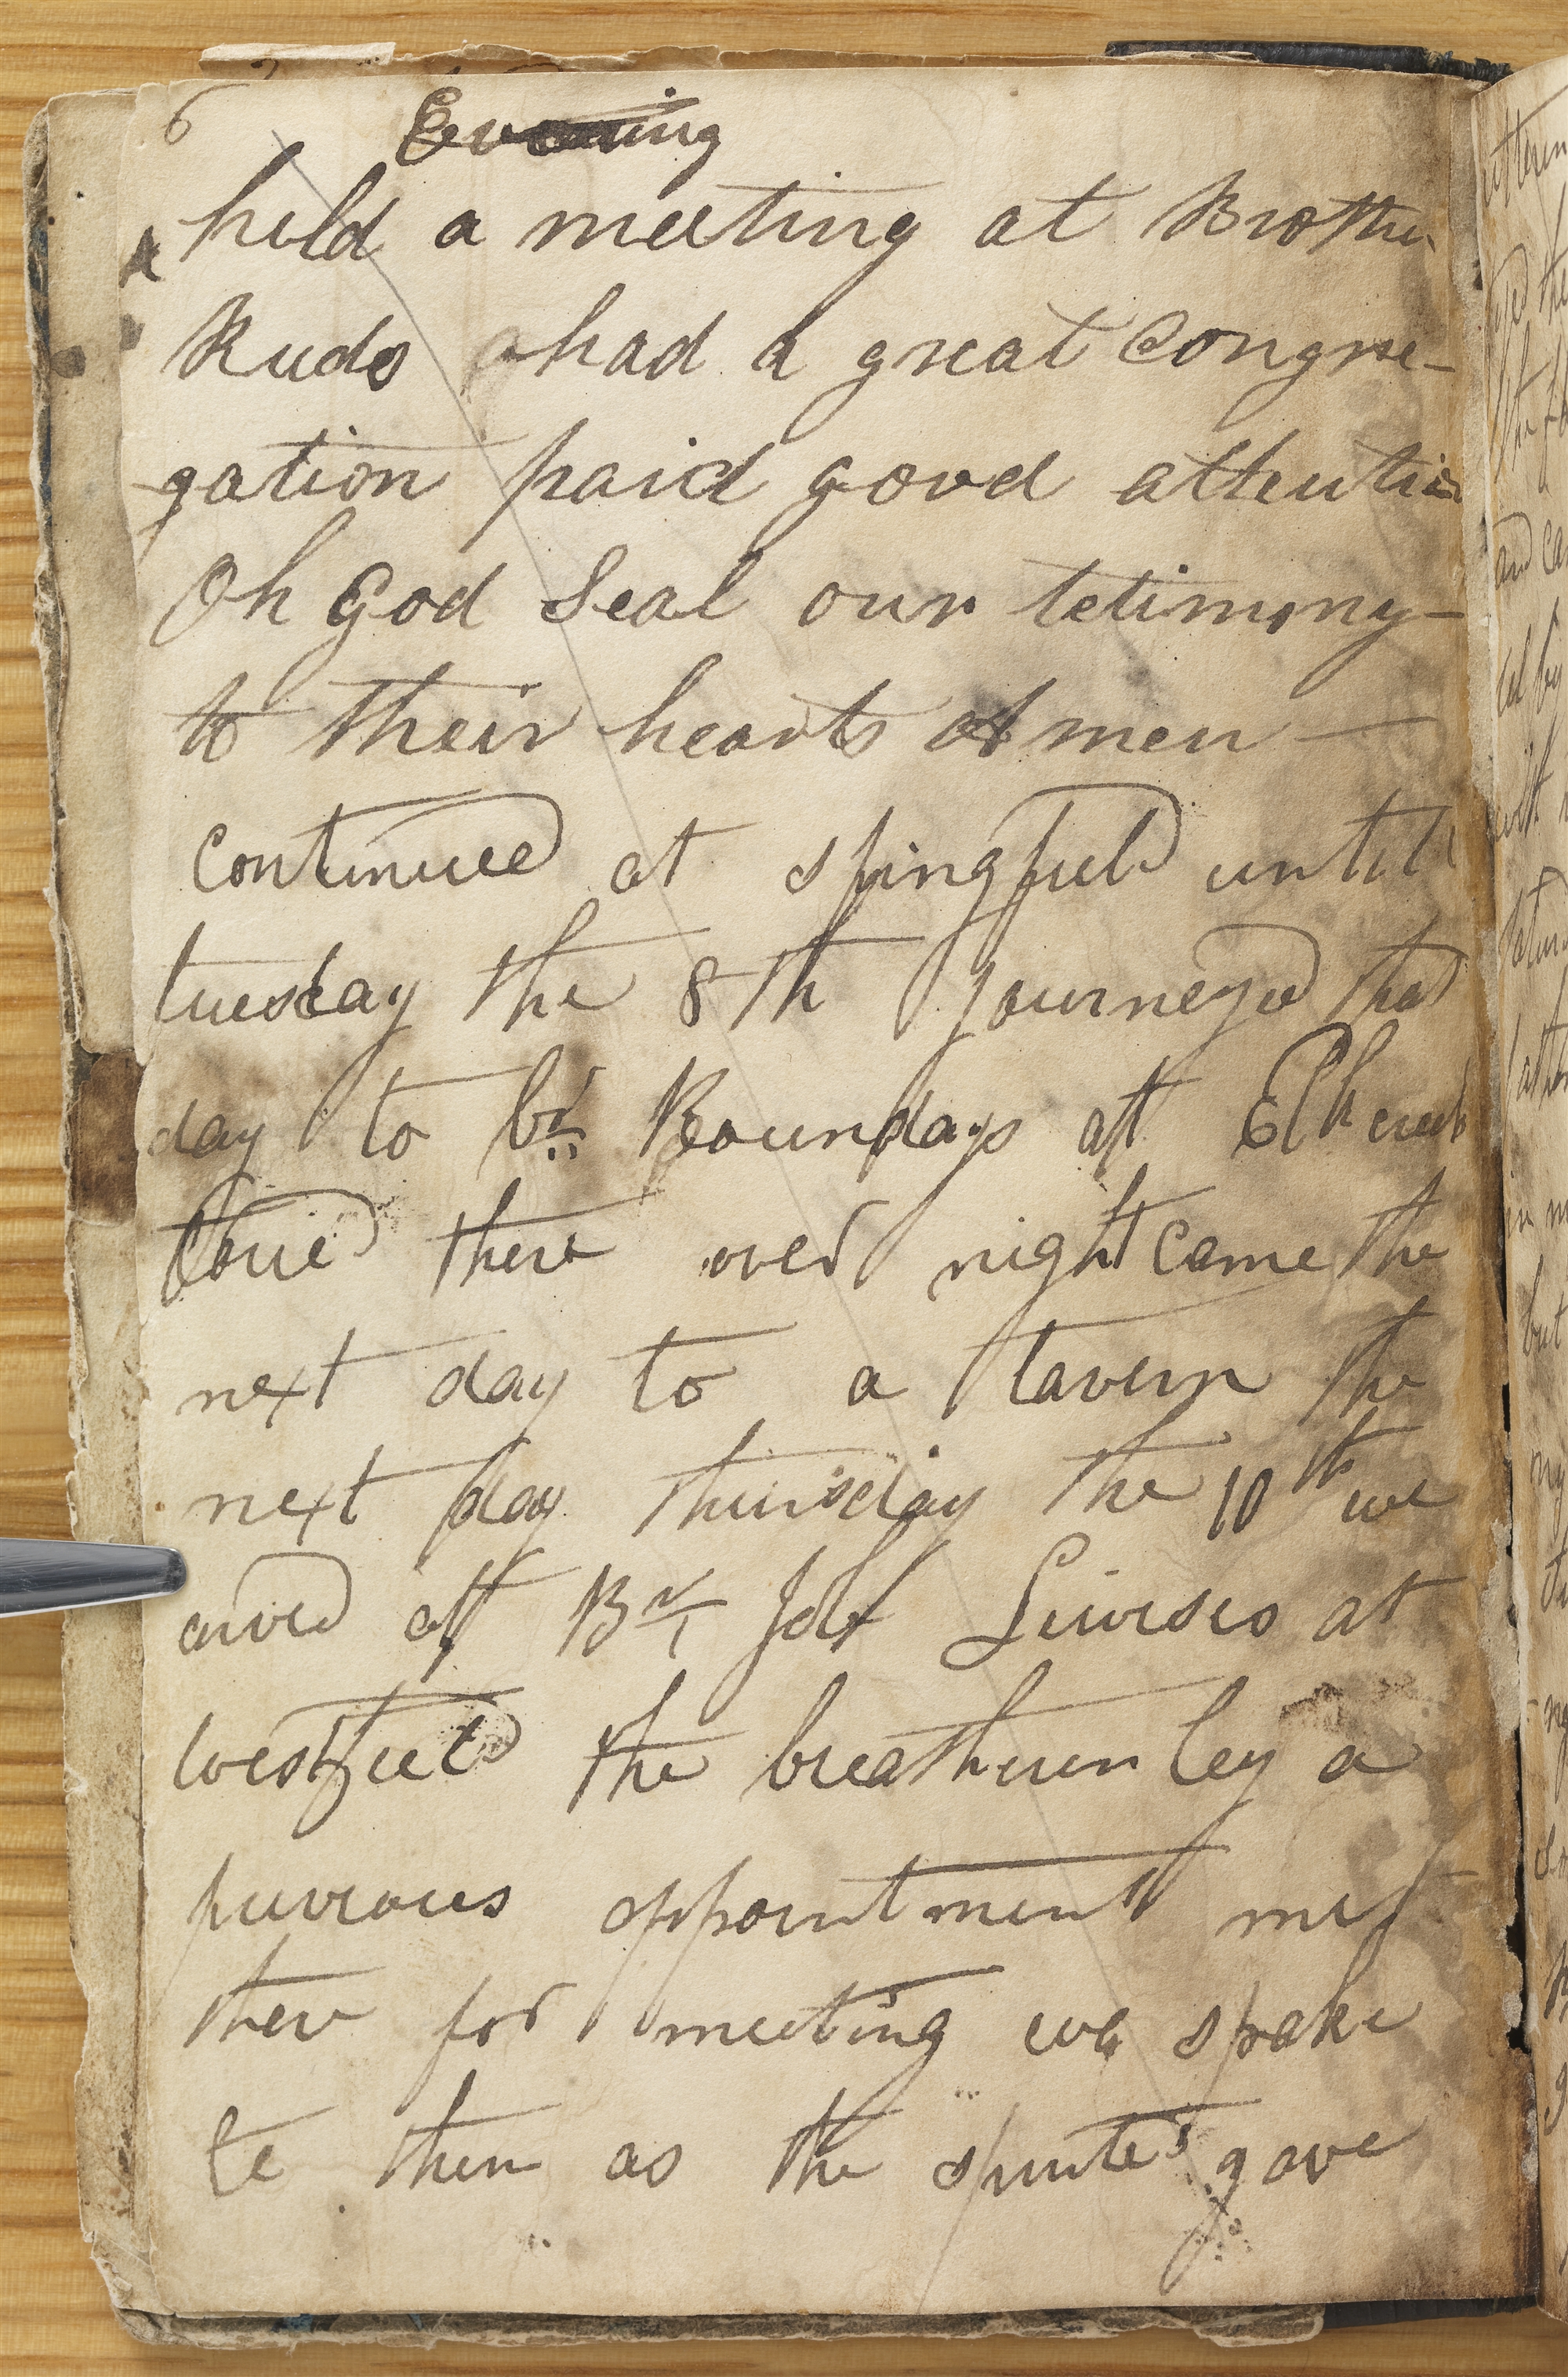 6 Evening
held a meeting at Brother
Ruds had a great Congre-
gation paid good attention
Oh God Seal our tetimony-
to their hearts Amen —
continued at spingfield untill
tuesday the 8th Journeyed that
day to br. Boundays at Elk creek
taried there over night came the
next day to a tavern the
next day thursday the 10th we
arived at Br. Job Lewises at
westfield the breatheren by a
previous appointment met
there for meeting we spake
to them as the spirite gave